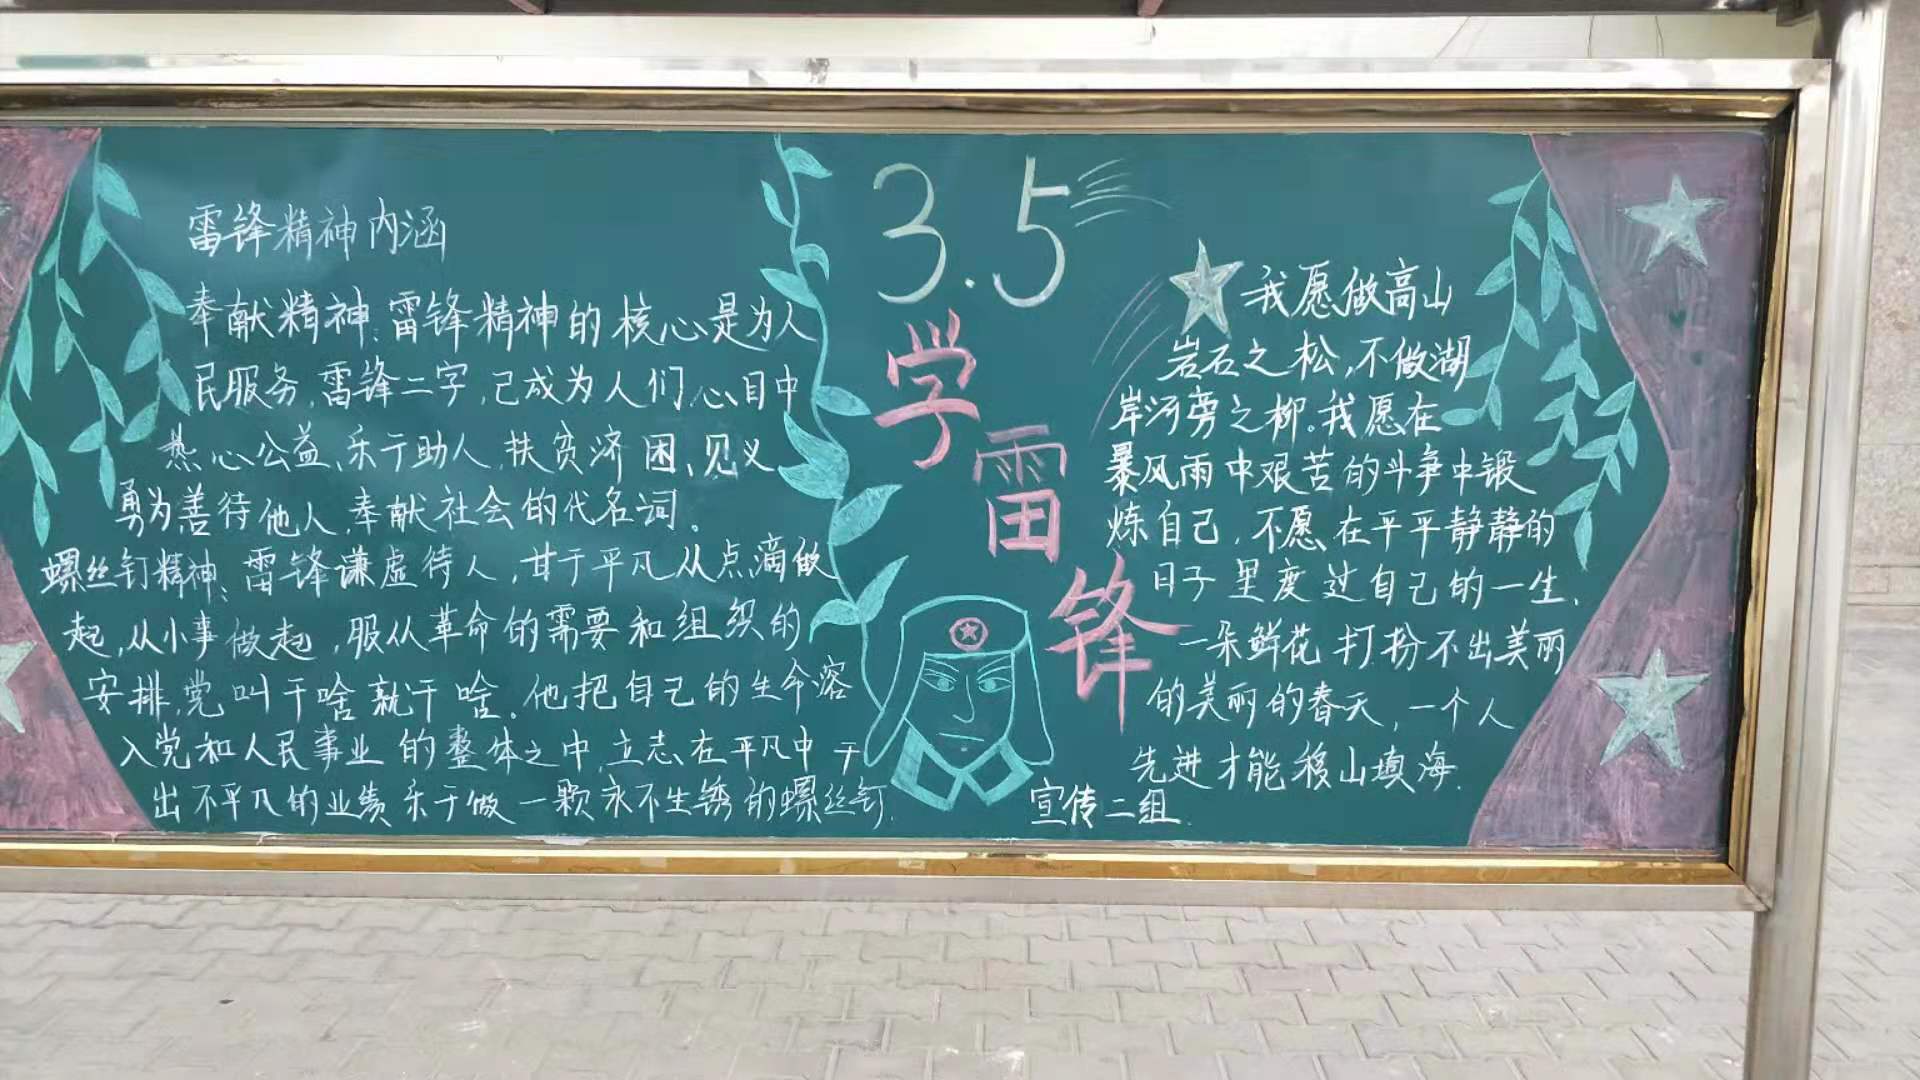 雷锋精神内涵
奉献精神:雷锋精神的核心是为人
民服务,雷锋二字,已成为人们心目中
热心公益、乐于助人、扶贫济困、见义
勇为善待他人,奉献社会的代名词。
螺丝钉精神:雷锋谦虚待人,甘于平凡从点滴做
起,从小事做起,服从革命的需要和组织的
安排,党叫干啥就干啥。他把自己的生命溶
入党和人民事业的整体之中,立志在平凡中干
出不平凡的业绩乐于做一颗永不生锈的螺丝钉.
3.5
学
雷
锋
我愿做高山
岩石之松,不做湖
岸河旁之柳。我愿在
暴风雨中艰苦的斗争中锻
炼自己,不愿在平平静静的
日子里度过自己的一生.
一朵鲜花打扮不出美丽
的美丽的春天,一个人
先进才能移山填海.
宣传二组.